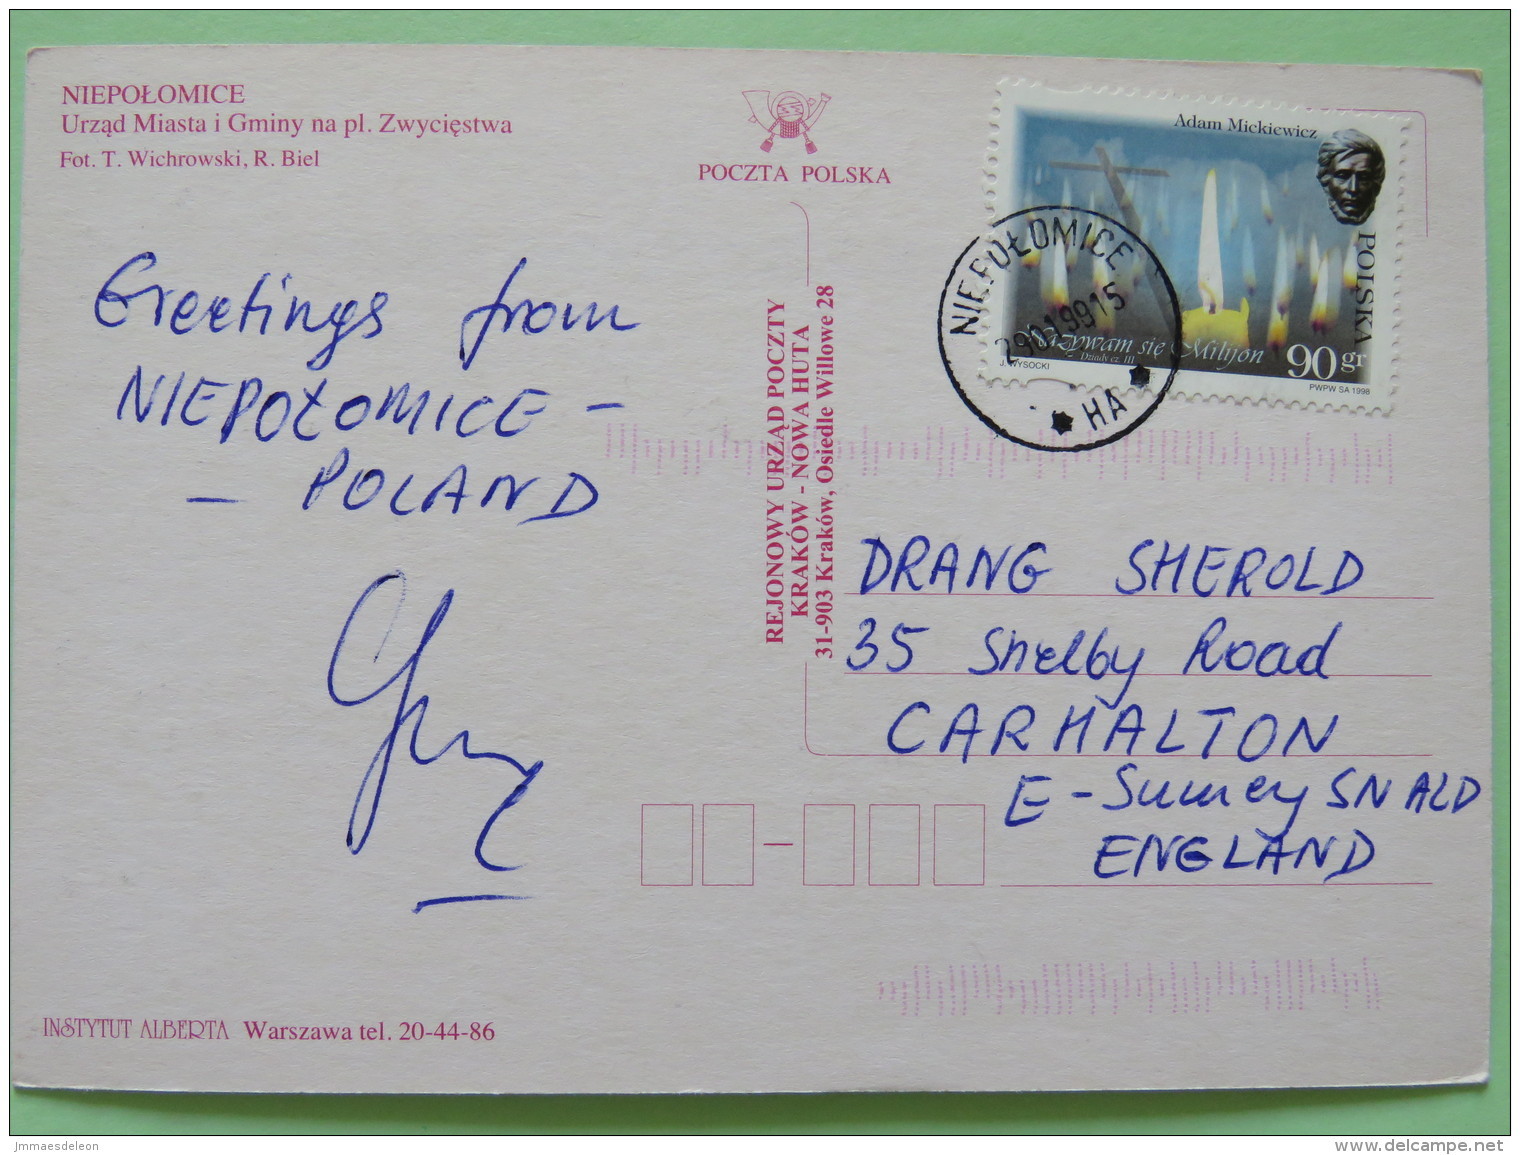 NIEPOŁOMICE
Urząd Miasta i Gminy na pl. Zwycięstwa
Fot. T. Wichrowski, R. Biel
POCZTA POLSKA
Adam Mickiewicz
POLSKA
Nazywam się Milijon
Dziady cz. III
90 gr
J. WYSOCKI
PWPW SA 1998
NIEPOŁOMICE
HA
Greetings from
NIEPOŁOMICE -
- POLAND
REJONOWY URZĄD POCZTY
KRAKÓW - NOWA HUTA
31-903 Kraków, Osiedle Willowe 28
DRANG SHEROLD
35 Shelby Road
CARHALTON
E - Surrey SN ALD
ENGLAND
INSTYTUT ALBERTA Warszawa tel. 20-44-86
jmmaesdeleon
delcampe.net